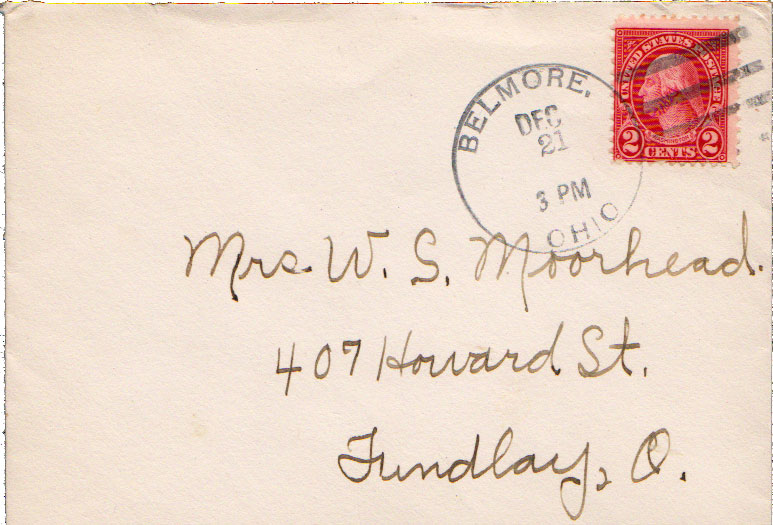 UNITED STATES POSTAGE
2 CENTS 2
BELMORE,
DEC
21
3 PM
OHIO
Mrs. W. S. Moorhead.
407 Howard St.
Findlay, O.